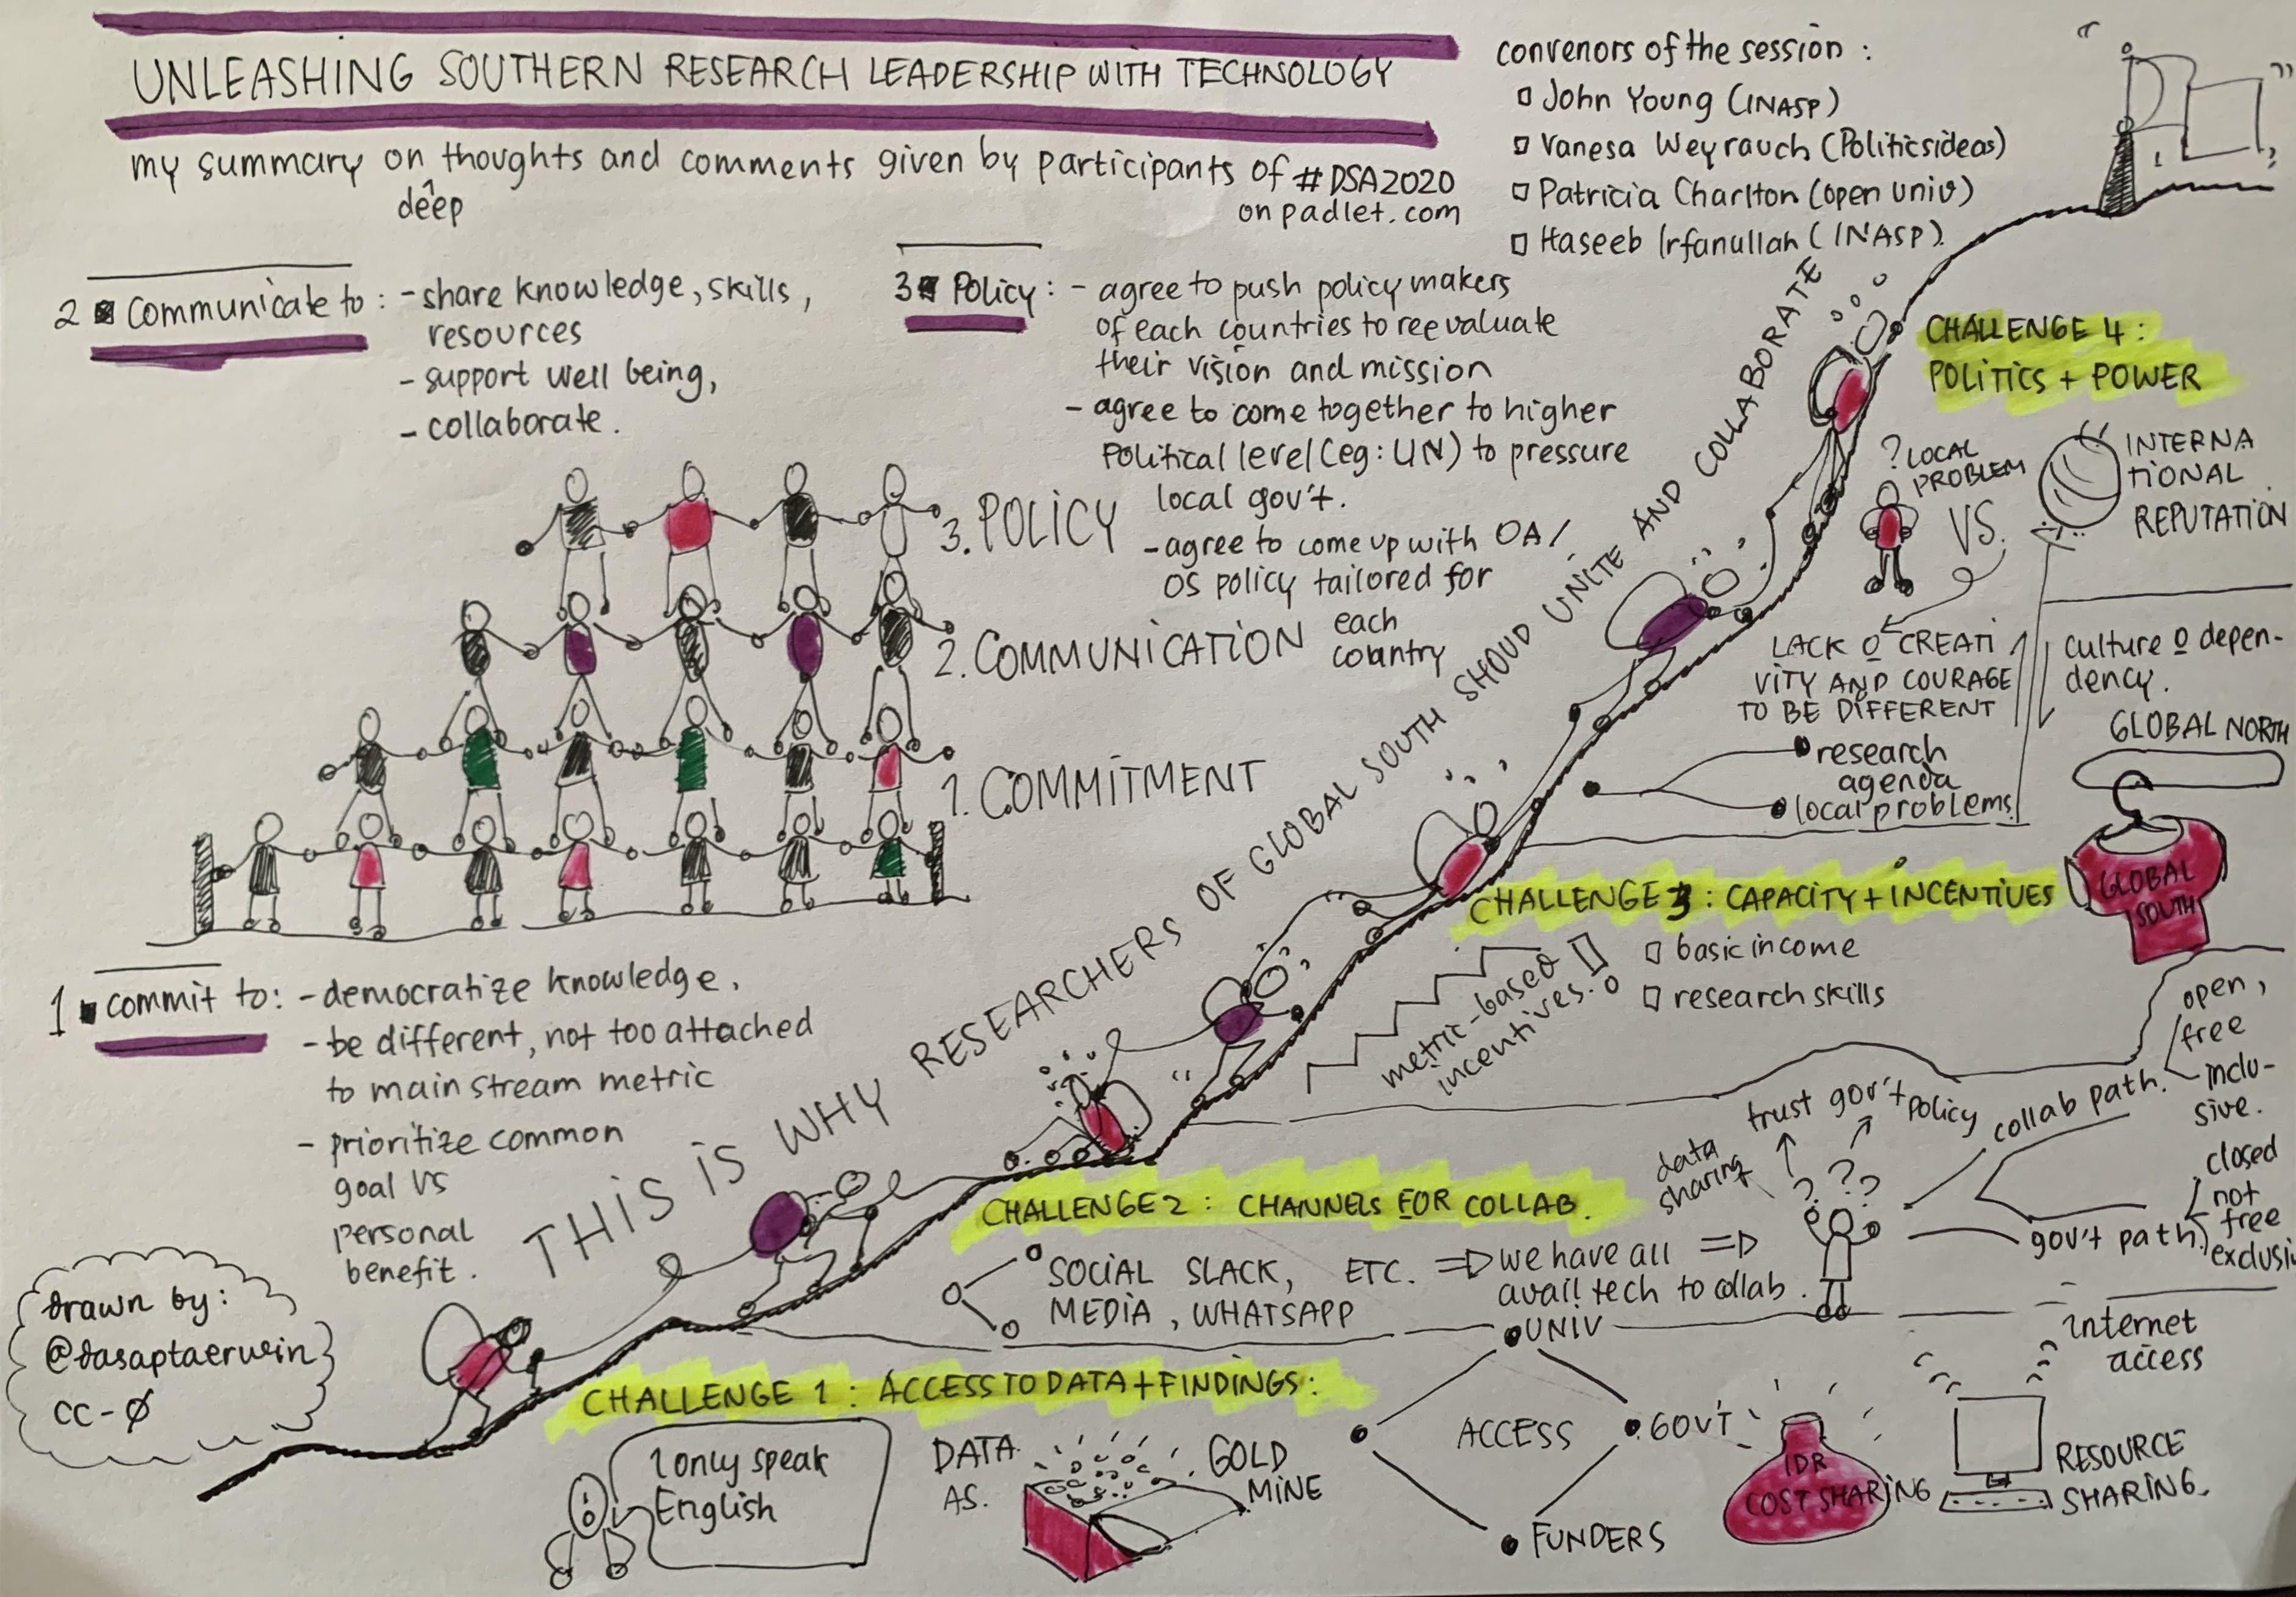 UNLEASHING SOUTHERN RESEARCH LEADERSHIP WITH TECHNOLOGY
my summary on thoughts and comments given by participants of #DSA2020
deep
on padlet.com
convenors of the session :
John Young (INASP)
Vanesa Weyrauch (Politicsideas)
Patricia Charlton (open univ)
Haseeb Irfanullah (INASP)
2 Communicate to : - share knowledge, skills,
resources
- support well being,
- collaborate.
3 Policy : - agree to push policy makers
of each countries to reevaluate
their vision and mission
- agree to come together to higher
Political level (eg: UN) to pressure
local gov't.
- agree to come up with OA/
OS policy tailored for
each
country
3. POLICY
2. COMMUNICATION
1. COMMITMENT
1 commit to: - democratize knowledge.
- be different, not too attached
to main stream metric
- prioritize common
goal vs
personal
benefit.
THIS IS WHY RESEARCHERS OF GLOBAL SOUTH SHOUD UNITE AND COLLABORATE
drawn by:
@dasaptaerwin
CC-Ø
CHALLENGE 4 :
POLITICS + POWER
? LOCAL
PROBLEM
VS.
INTERNA
TIONAL
REPUTATION
LACK O CREATI
VITY AND COURAGE
TO BE DIFFERENT
culture o depen-
dency.
research
agenda
local problems
GLOBAL NORTH
GLOBAL
SOUTH
CHALLENGE 3 : CAPACITY + INCENTIVES
metric-based
incentives.
basic income
research skills
CHALLENGE 2 : CHANNELS FOR COLLAB.
SOCIAL SLACK, ETC. ⇒ we have all ⇒
MEDIA, WHATSAPP avail tech to collab.
data
sharing
trust gov't policy
? ? ? ?
collab path.
open,
free
inclu-
sive.
gov't path.
closed
not
free
exclusi
CHALLENGE 1 : ACCESS TO DATA + FINDINGS :
I only speak
English
DATA
AS.
GOLD
MINE
UNIV
ACCESS
GOV'T
FUNDERS
IDR
COST SHARING
internet
access
RESOURCE
SHARING.